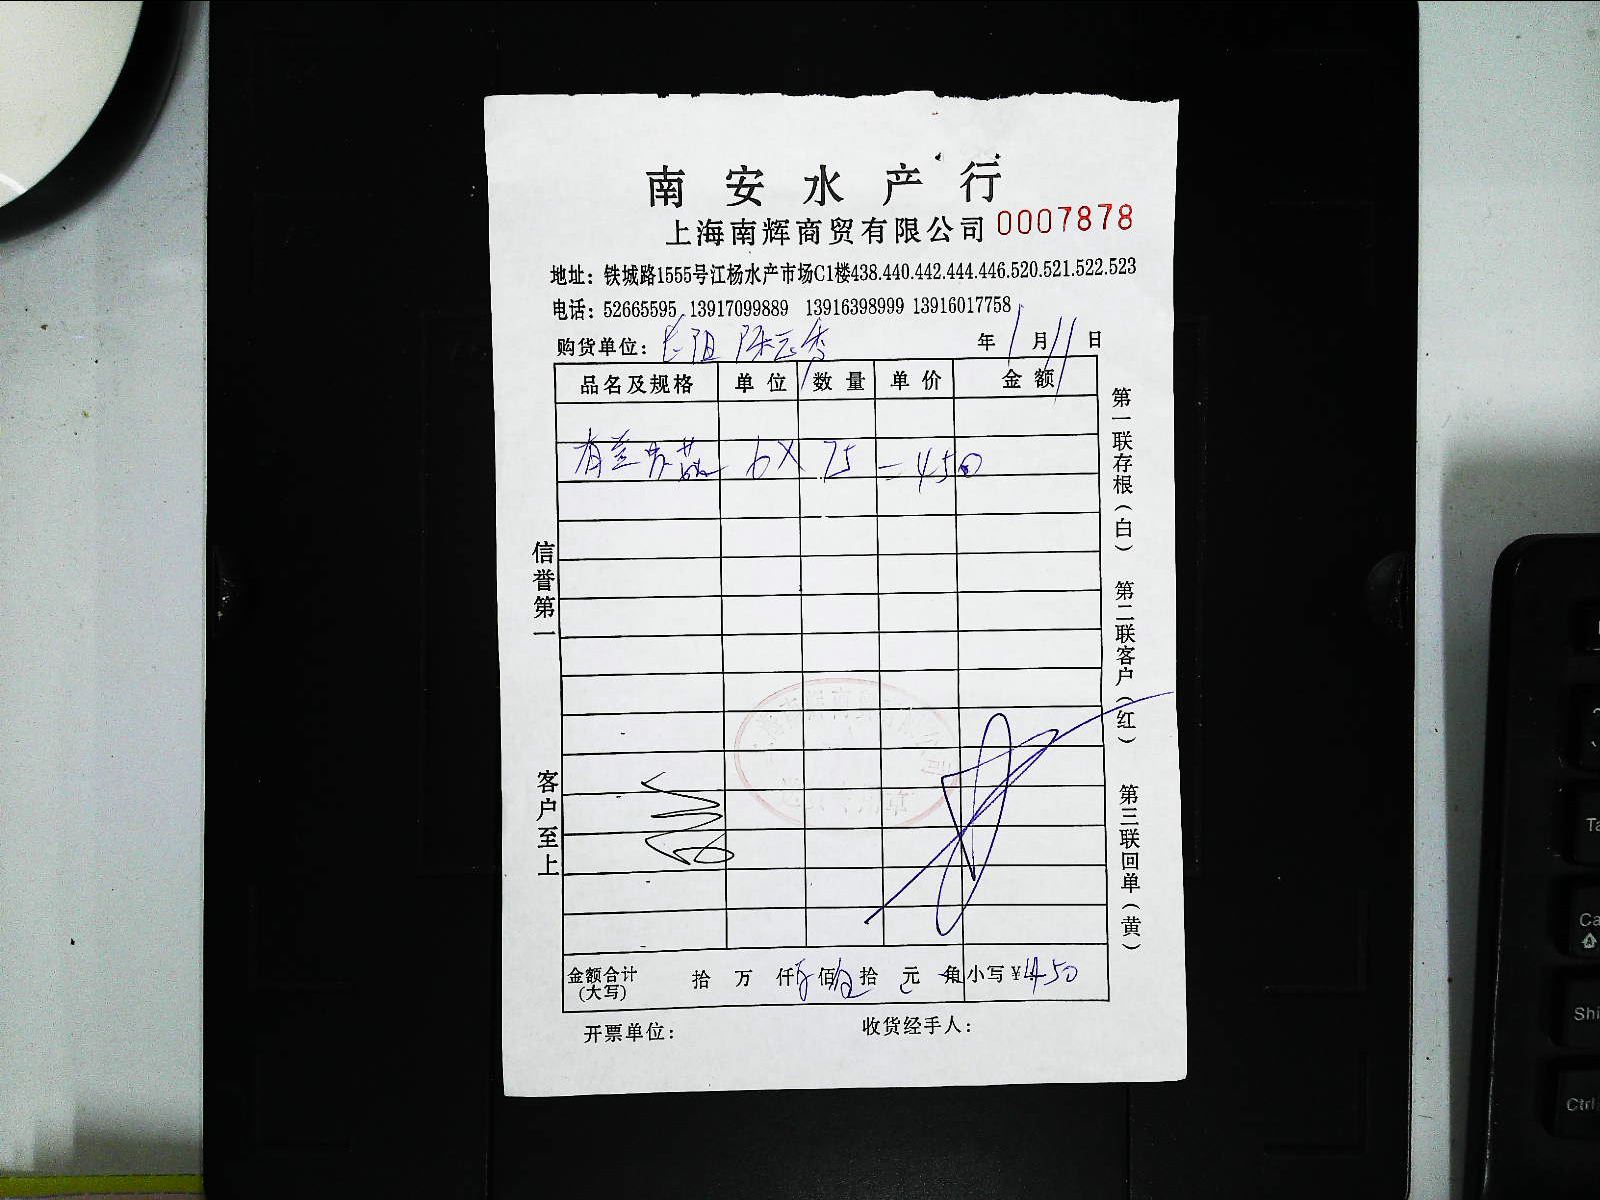 南安水产行
上海南辉商贸有限公司 0007878
地址：铁城路1555号江杨水产市场C1楼438.440.442.444.446.520.521.522.523
电话：52665595 13917099889 13916398999 13916017758
购货单位： 陈云香 年 1 月 11 日
品名及规格 单位 数量 单价 金额
6 X 75 = 450
信誉第一
客户至上
第一联存根（白） 第二联客户（红） 第三联回单（黄）
金额合计(大写) 拾 万 仟 佰 拾 元 角 小写 ¥450
开票单位： 收货经手人：
Ctrl